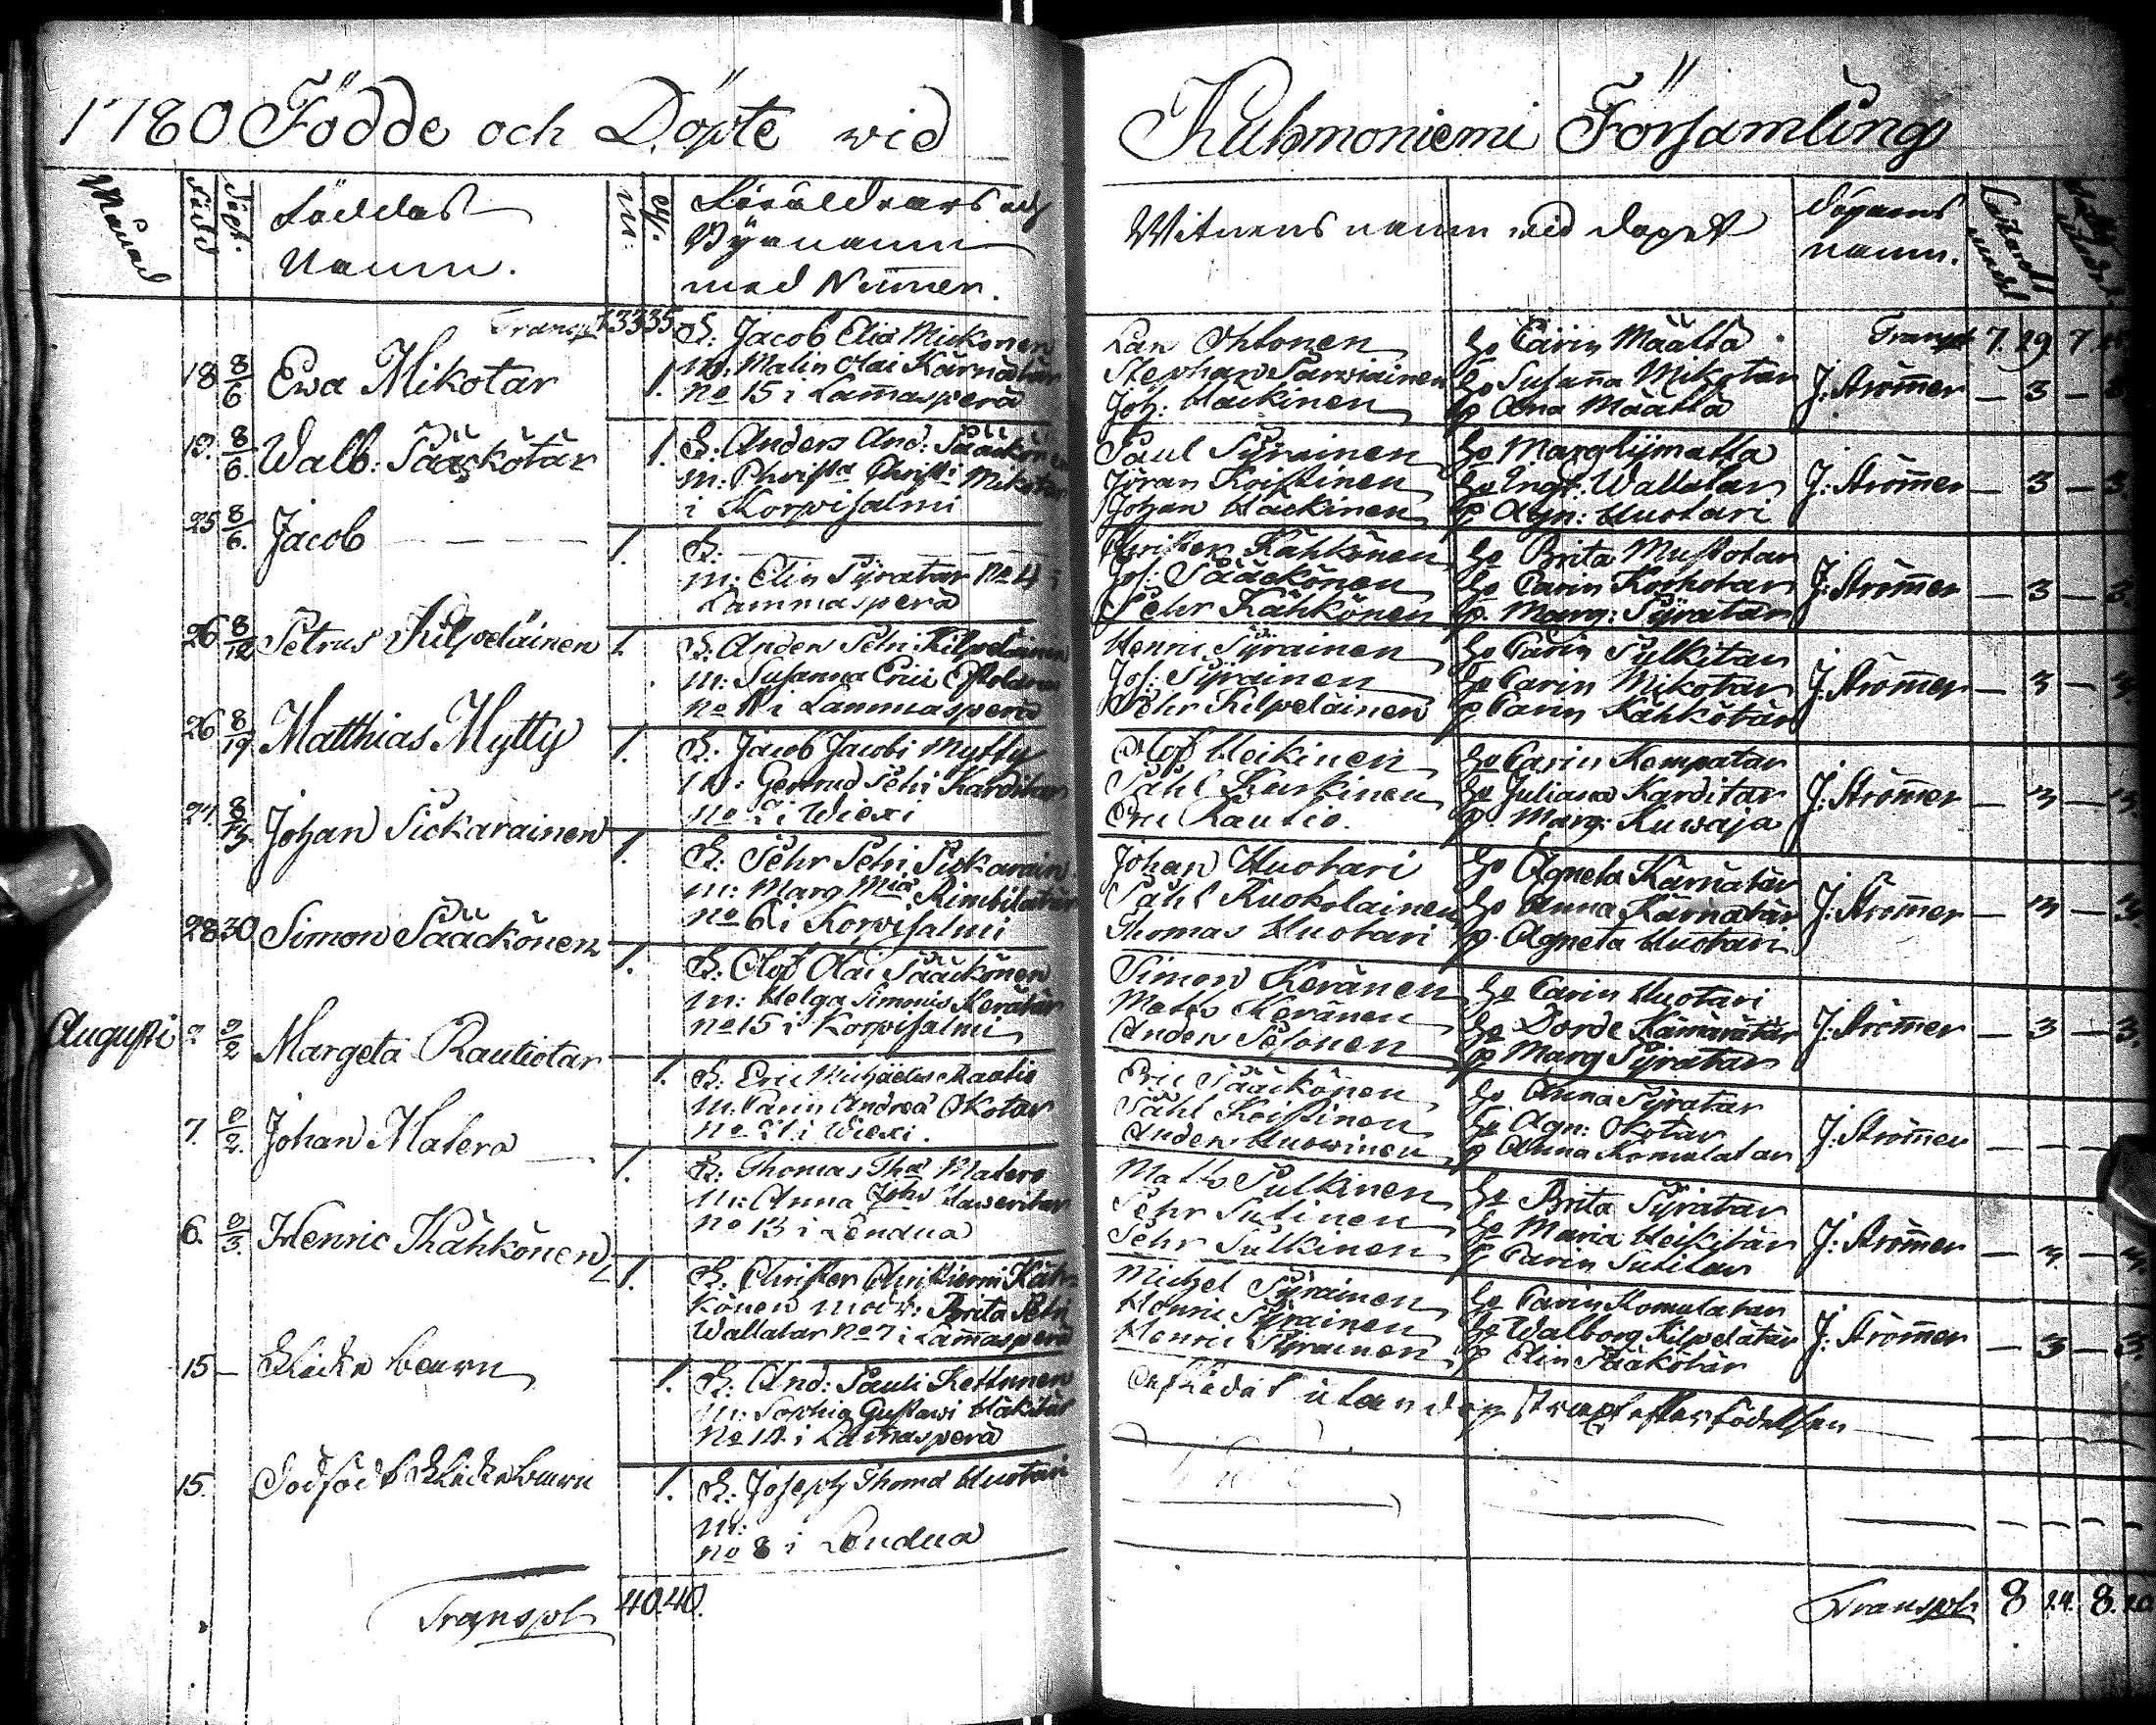 1780 Födde och Döpte wid
Kuhmoniemi Församling
Månad
född
döpt.
Föddas
Namn.
Föräldrars och
Bynamn
med Numer.
Witnens namn vid dopet
dopams
namn.
Transpt 33 35.
F: Jacob Elia Mickonen
18 8/6 Ewa Mikotar 1.
M: Malin Olai Kärnätär
No 15 i Lammasperä
Lars Ohtonen
Stephan Särwiainen
Joh: Hackinen
Ho Carin Määttä
Ho Susanna Mikotar
p Ana Määttä
Transpt 7. 29. 7.
J: Strömmer — 3 —
19. 8/6. Walb: Sääskötär 1.
F: Anders And: Sääskönen
M: Christa Christi Mikotar
i Korpisalmi
Paul Pyrainen
Jöran Koistinen
Johan Hackinen
Ho Marg Lijmatta
Ho Ingb: Wallatar
p Agn: Huotari
J: Strömmer — 3 — 3.
25 8/6. Jacob — — — 1.
F: — — —
M: Elin Pyratar No 4 i
Lammasperä
Christer Kähkönen
Jos: Sääskönen
Pehr Kähkönen
Ho Brita Mustotar
Ho Carin Korhotar
p. Marg: Pyratar
J: Strömmer — 3 — 3.
26 8/12 Petrus Kilpeläinen 1.
F: Anders Petri Kilpeläinen
M: Susanna Erici
No 11 i Lammasperä
Henric Pyrainen
Jos: Pyrainen
Pehr Kilpeläinen
Ho Carin Pulkitar
Ho Carin Mikotar
p Carin Kähkötär
J: Strömmer — 3 — 3.
26 8/19 Matthias Mytty 1.
F: Jacob Jacobi Mytty
M: Gertrud Petri Karditar
No 2 i Wiexi
Olof Heikinen
Påhl Kurkinen
Eric Rautio.
Ho Carin Kempatar
Ho Juliana Karditar
p. Marg: Kuwaja
J: Strömmer — 3 — 3.
27. 8/13. Johan Pickarainen 1.
F: Pehr Petri Pickarain
M: Marg Mia Rimbilatar
No 6 i Korpisalmi
Johan Huotari
Påhl Kuokolainen
Thomas Huotari
Ho Agneta Kärnätär
Ho Anna Kärnatär
p. Agneta Huotari
J: Strömmer — 3 — 3.
28 30. Simon Sääskönen 1.
F: Olof Olai Sääskönen
M: Helga Simonis Kerätär
No 15 i Korpisalmi
Simon Keränen
Matts Keränen
Anders Pelonen
Ho Carin Huotari
Ho Dorde Kämärätär
p Marg Pyratar
J: Strömmer — 3 — 3.
Augusti 2 9/2 Margeta Rautiotar 1.
F: Eric Michaelis Rautio
M: Carin Andreä Okotar
No 21 i Wiexi.
Eric Sääskönen
Påhl Koistinen
Anders Huowinen
Ho Anna Pyratar
Ho Agn: Okotar
p Anna Komulatar
J: Strömmer — — —
7. 9/2. Johan Matero — 1.
F: Thomas Tho Matero
M: Anna Joh:
No 13 i Lendua
Matts Pulkinen
Pehr Sutinen
Pehr Pulkinen
Ho Brita Pyratar
Ho Maria Heikitär
p Carin Sutitar
J: Strömmer — 3 — 3.
6. 9/3. Henric Kähkönen 1.
F: Christer Christierni Käh-
könen modr: Brita Petri
Wallatar No 7 i Lamasperä
Michel Pyrainen
Henric Pyrainen
Henric Pyrainen
Ho Carin Komulatar
Ho Walborg Kilpelätär
p Elin Sääskötär
J: Strömmer — 3 — 3.
15 — Flicke barn 1.
F: And: Pauli Kettunen
M: Sophia Gustavi Häkitär
No 14. i Lamasperä
Afledet utan dop straxt efter födelsen
15. Dödfödt Flickebarn 1.
F: Joseph Thomä Huotari
M:
No 8 i Lendua
Transpt 40. 40.
Transpt 8 24. 8. 20